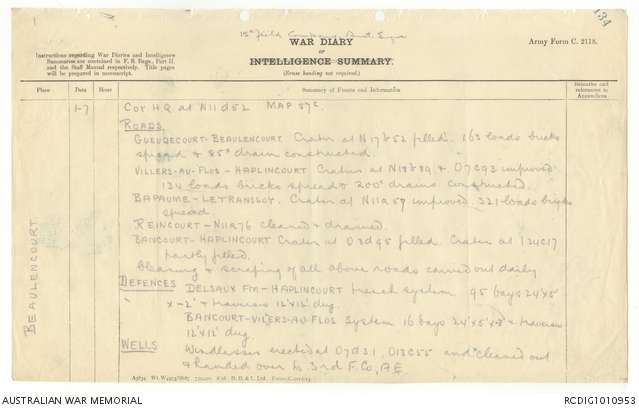 15th Field Company Aust. Engrs
134
WAR DIARY
or
INTELLIGENCE SUMMARY.
(Erase heading not required.)
Army Form C. 2118.
Instructions regarding War Diaries and Intelligence
Summaries are contained in F. S. Regs., Part II.
and the Staff Manual respectively. Title pages
will be prepared in manuscript.
Place
Date
Hour
Summary of Events and Information
Remarks and
references to
Appendices
BEAULENCOURT
1-7
Coy H.Q. at N11d52 MAP 57c.
ROADS
GUEUDECOURT-BEAULENCOURT Crater at N17b52 filled. 163 loads bricks
spread & 85x drain constructed.
VILLERS-AU-FLOS - HAPLINCOURT Craters at N18b89 & O7c93 improved
134 loads bricks spread & 200x drains constructed.
BAPAUME-LETRANSLOY. Crater at N11a59 improved 321 loads bricks
spread.
REINCOURT-N11a76 cleaned & drained.
BANCOURT-HAPLINCOURT Crater at O3d95 filled. Crater at I34c17
partly filled.
Clearing & scraping of all above roads carried out daily
DEFENCES DELSAUX FM-HAPLINCOURT trench system 95 bays 24'x5'
x-2' & traverses 12'x12' dug.
BANCOURT-VILLERS-AU-FLOS System 16 bays 24'x5'x8' & traverses
12'x12' dug.
WELLS Windlasses erected at O7d31, O13c55 and cleaned out
& handed over to 3rd F. Co, A.E.
AUSTRALIAN WAR MEMORIAL
RCDIG1010953